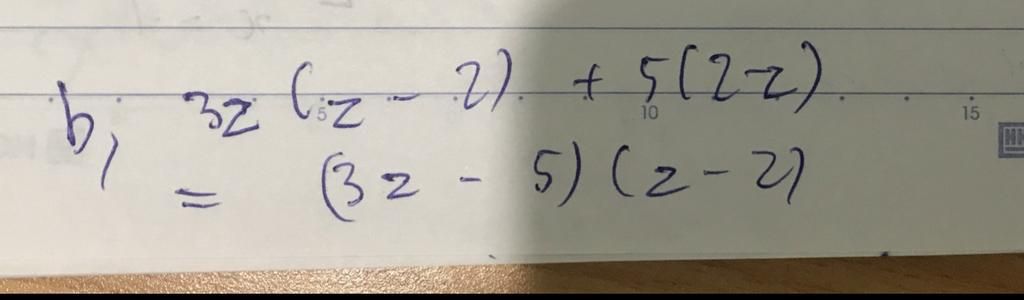 b, 3z (z - 2) + 5(2-z)
5 10 15
= (3z - 5) (z - 2)